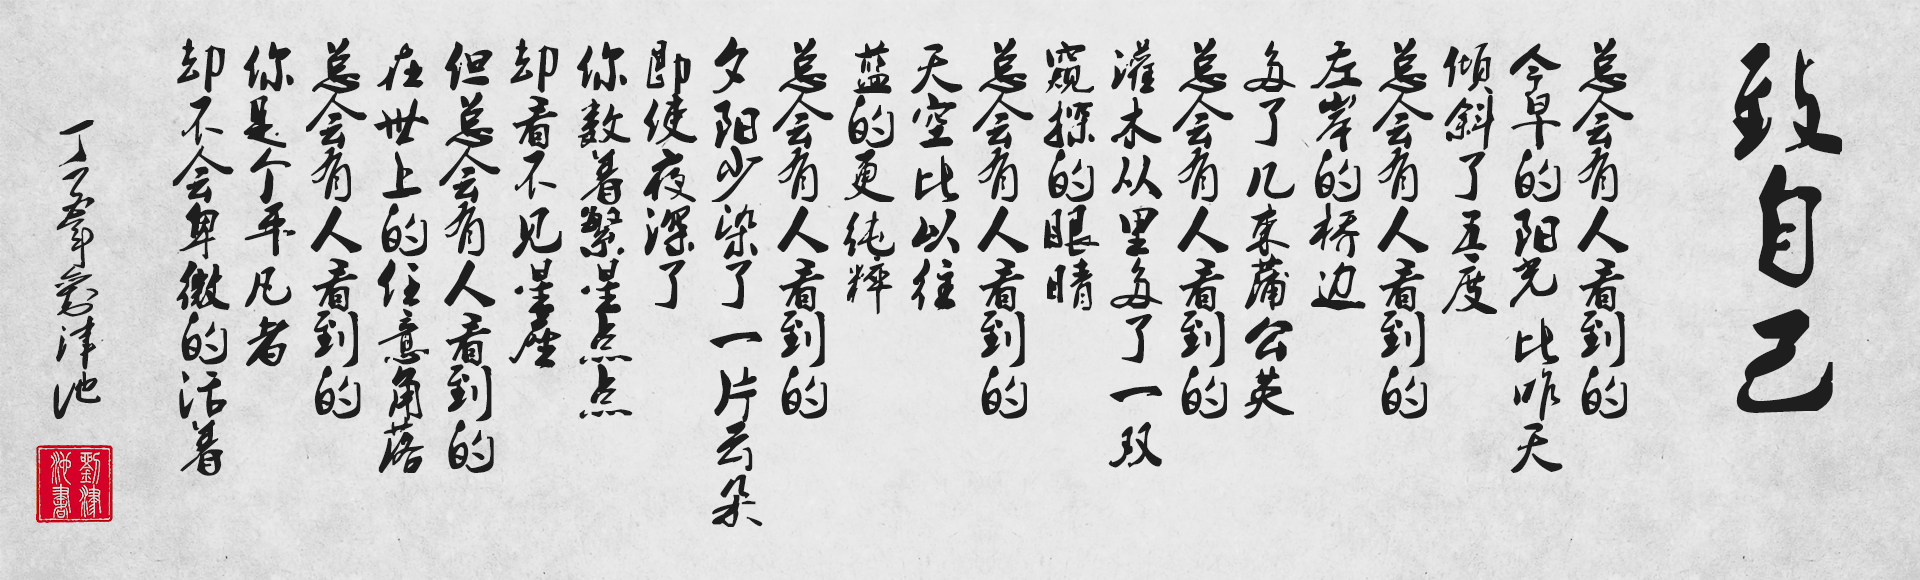 致自己
总会有人看到的
今早的阳光 比昨天
倾斜了五度
总会有人看到的
左岸的桥边
多了几束蒲公英
总会有人看到的
灌木丛里多了一双
窥探的眼睛
总会有人看到的
天空比以往
蓝的更纯粹
总会有人看到的
夕阳少染了一片云朵
即使夜深了
你数着繁星点点
却看不见星座
但总会有人看到的
在世上的任意角落
总会有人看到的
你是个平凡者
却不会卑微的活着
刘津池
劉津池書